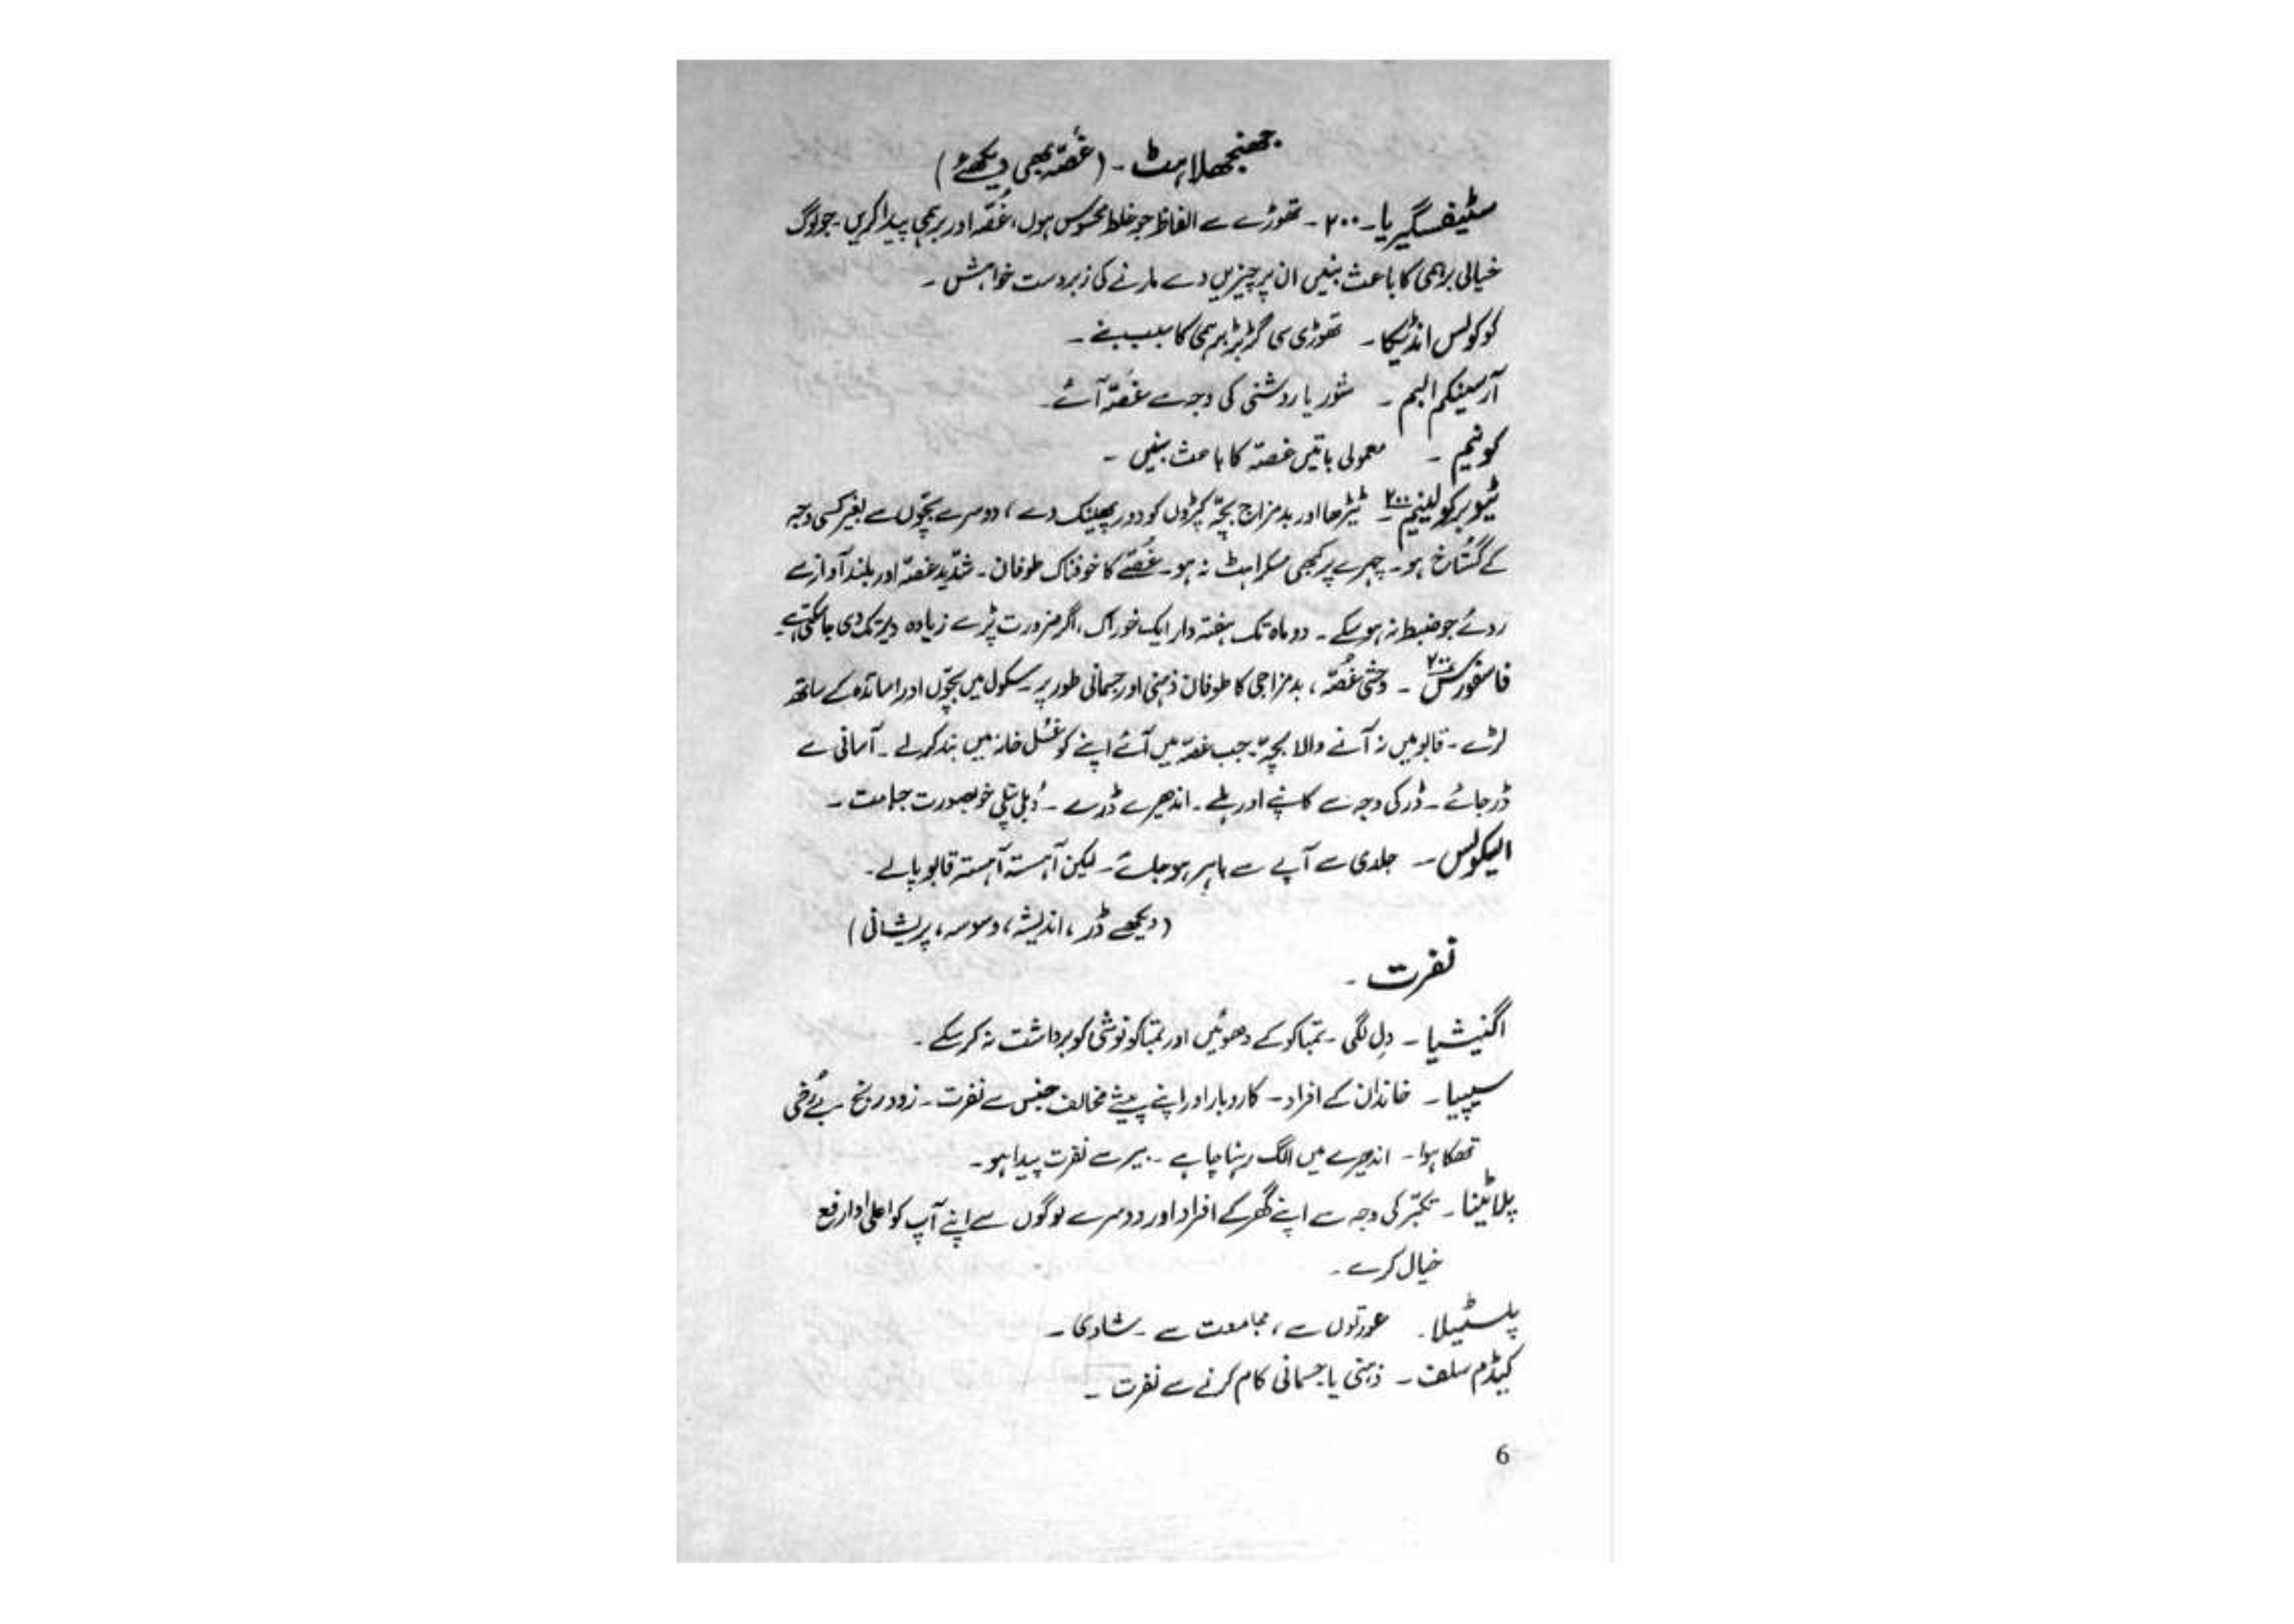 جھنجھلاہٹ - (غصّہ بھی دیکھئے)
سٹیفسگیریا - ۲۰۰ - تھوڑے سے الفاظ جو غلط محسوس ہوں، غُصّہ اور برہمی پیدا کریں - جو لوگ
خیالی برہمی کا باعث بنیں ان پر چیزیں دے مارنے کی زبردست خواہش -
کوکولس انڈیکا - تھوڑی سی گڑبڑ برہمی کا سبب بنے -
آرسینکم البم - شور یا روشنی کی وجہ سے غُصّہ آئے -
کونیم - معمولی باتیں غصّہ کا باعث بنیں -
ٹیوبرکولینیم ۲۰۰ - ٹیڑھا اور بدمزاج بچّہ کپڑوں کو دور پھینک دے، دوسرے بچّوں سے بغیر کسی وجہ
کے گستاخ ہو - چہرے پر کبھی مسکراہٹ نہ ہو - غُصّے کا خوفناک طوفان - شدید غصّہ اور بلند آواز سے
روئے جو ضبط نہ ہو سکے - دو ماہ تک ہفتہ وار ایک خوراک، اگر ضرورت پڑے زیادہ دیر تک دی جا سکتی ہے -
فاسفورس ۲۰۰ - وحشی غُصّہ، بدمزاجی کا طوفان ذہنی اور جسمانی طور پر - سکول میں بچّوں اور اساتذہ کے ساتھ
لڑے - قابو میں نہ آنے والا بچّہ - جب غصّہ میں آئے اپنے کو غسل خانہ میں بند کر لے - آسانی سے
ڈر جائے - ڈر کی وجہ سے کانپے اور ہلے - اندھیرے سے ڈرے - دُبلی پتلی خوبصورت جسامت -
ایسکولس - جلدی سے آپے سے باہر ہو جائے - لیکن آہستہ آہستہ قابو پالے -
(دیکھے ڈر، اندیشہ، وسوسہ، پریشانی)
نفرت -
اگنیشیا - دل لگی - تمباکو کے دھوئیں اور تمباکو نوشی کو برداشت نہ کر سکے -
سیپیا - خاندان کے افراد - کاروبار اور اپنے پیشے مخالف جنس سے نفرت - زود رنج - بے رُخی
تھکا ہوا - اندھیرے میں الگ رہنا چاہے - بیر سے نفرت پیدا ہو -
پلاٹینا - تکبّر کی وجہ سے اپنے گھر کے افراد اور دوسرے لوگوں سے اپنے آپ کو اعلیٰ و ارفع
خیال کرے -
پلسٹیلا - عورتوں سے، مجامعت سے - شادی -
کیڈم سلف - ذہنی یا جسمانی کام کرنے سے نفرت -
6